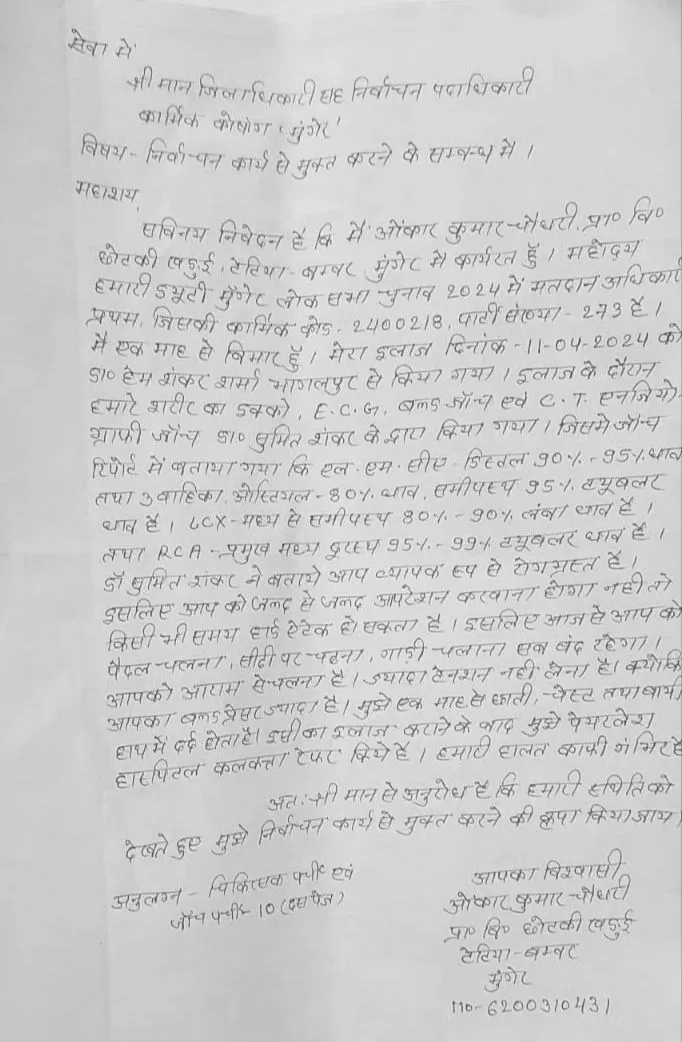 सेवा में
श्री मान जिलाधिकारी सह निर्वाचन पदाधिकारी
कार्मिक कोषांग 'मुंगेर'
विषय - निर्वाचन कार्य से मुक्त करने के सम्बन्ध में ।
महाशय,
सविनय निवेदन है कि मैं ओंकार कुमार चौधरी, प्रा० वि०
छोटकी खड़ुई, टेटिया-बम्बर मुंगेर में कार्यरत हूँ । महोदय
हमारी ड्यूटी मुँगेर लोक सभा चुनाव 2024 में मतदान अधिकारी
प्रथम, जिसकी कार्मिक कोड - 2400218, पार्टी संख्या - 273 है ।
मै एक माह से बिमार हूँ । मेरा इलाज दिनांक -11-04-2024 को
डा० हेम शंकर शर्मा भागलपुर से किया गया । इलाज के दौरान
हमारे शरीर का इक्को, E.C.G, बलड जाँच एवं C.T. एनजियो-
ग्राफी जाँच डा० सुमित शंकर के द्वारा किया गया । जिसमे जाँच
रिपोर्ट में बताया गया कि एल. एम. सीए - डिस्टल 90% - 95% थाव
तथा 3 वाहिका, ओस्टियल - 80% थाव, समीपस्थ 95% ट्यूबलर
थाव है । LCX - मध्य से समीपस्थ 80% - 90% लंबा थाव है ।
तथा RCA - प्रमुख मध्य दूरस्थ 95% - 99% ट्यूबलर थाव है ।
डॉ सुमित शंकर ने बताये आप व्यापक रूप से रोगग्रस्त है ।
इसलिए आप को जल्द से जल्द आपरेशन करवाना होगा नही तो
किसी भी समय हार्ड ऐटेक हो सकता है । इसलिए आज से आप को
पैदल चलना, सीढी पर चढना, गाडी चलाना सब बंद रहेगा ।
आपको आराम से चलना है । ज्यादा टेनशन नही लेना है । क्योकि
आपका बलड प्रेसर ज्यादा है । मुझे एक माह से छाती, चेस्ट तथा बायाँ
हाथ में दर्द होता है। इसी का इलाज कराने के बाद मुझे पेयरलेश
हास्पिटल कलकत्ता रेफर किये है । हमारी हालत काफी गंभिर है
अत: श्री मान से अनुरोध है कि हमारी स्थिति को
देखते हुए मुझे निर्वाचन कार्य से मुक्त करने की कृपा किया जाय ।
अनुलग्न - चिकित्सक पर्ची एवं
जाँच पर्ची - 10 (दस पेज)
आपका विश्वासी
ओंकार कुमार चौधरी
प्रा० वि० छोटकी खड़ुई
टेटिया - बम्बर
मुंगेर
MO - 6200310431